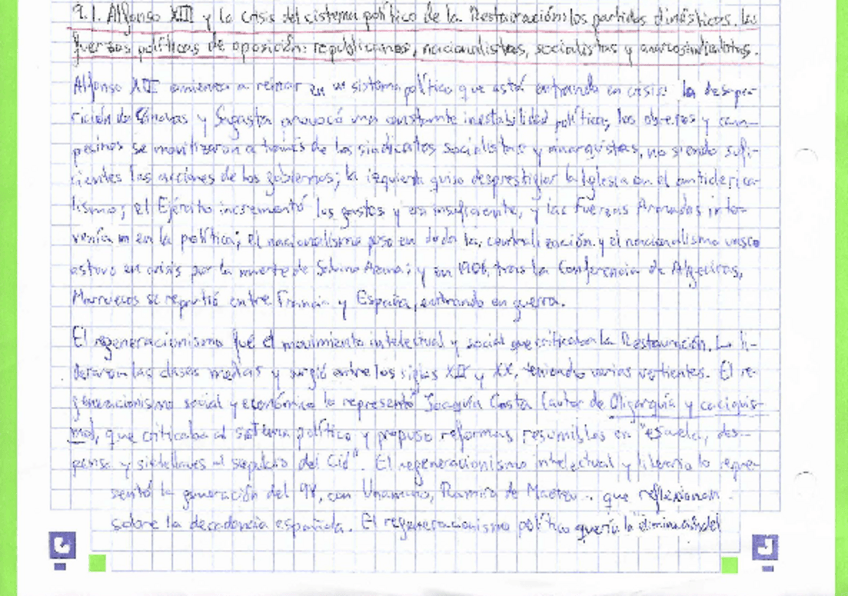 9.1. Alfonso XIII y la crisis del sistema político de la Restauración: los partidos dinásticos. Las
fuerzas políticas de oposición: republicanos, nacionalistas, socialistas y anarcosindicalistas.
Alfonso XIII comienza a reinar en un sistema político que está entrando en crisis: la desapa-
rición de Cánovas y Sagasta provocó una constante inestabilidad política, los obreros y cam-
pesinos se movilizaron a través de los sindicatos socialistas y anarquistas, no siendo sufi-
cientes las acciones de los gobiernos; la izquierda quiso desprestigiar la Iglesia con el anticlerica-
lismo; el Ejército incrementó los gastos y era insuficiente, y las Fuerzas Armadas inter-
venían en la política; el nacionalismo puso en duda la centralización y el nacionalismo vasco
estuvo en crisis por la muerte de Sabino Arana; y en 1906, tras la Conferencia de Algeciras,
Marruecos se repartió entre Francia y España, entrando en guerra.
El regeneracionismo fué el movimiento intelectual y social que criticaba la Restauración. Lo li-
deraron las clases medias y surgió entre los siglos XIX y XX, teniendo varias vertientes. El re-
generacionismo social y económico lo representó Joaquín Costa (autor de Oligarquía y caciquis-
mo), que criticaba al sistema político y propuso reformas resumibles en "escuela, des-
pensa y siete llaves al sepulcro del Cid". El regeneracionismo intelectual y literario lo repre-
sentó la generación del 98, con Unamuno, Ramiro de Maeztu... que reflexionan
sobre la decadencia española. El regeneracionismo político quería la eliminación del